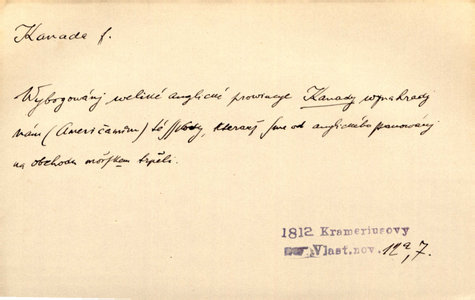 Kanada f.
Wybogowánj weliké anglické prowincye Kanady wynahradj
nám (Američanům) té sskody, kterauž sme od anglického panowánj
na obchodu mořském trpěli.
1812 Krameriusovy
Vlast.nov. 129,7.